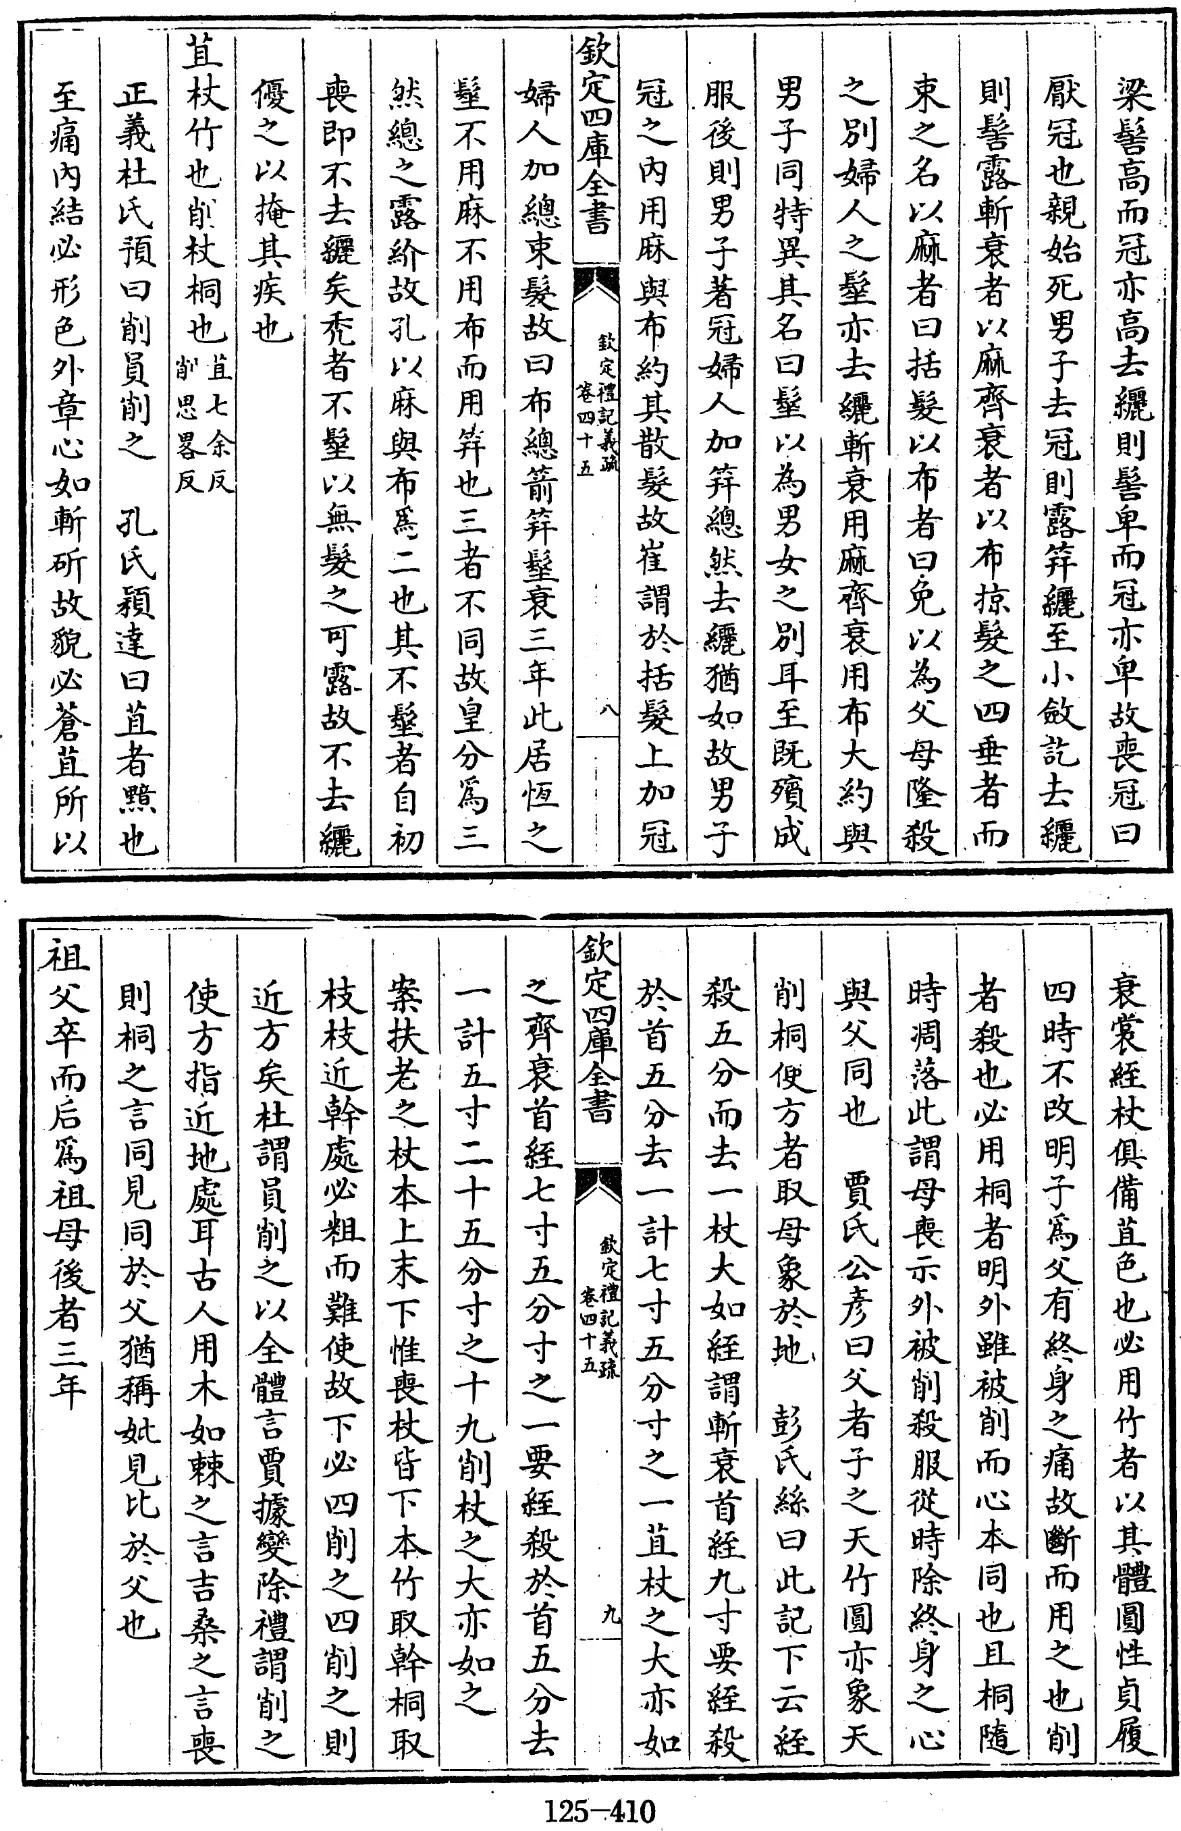 梁髻高而冠亦高去纚則髻卑而冠亦卑故喪冠曰
厭冠也親始死男子去冠則露笄纚至小斂訖去纚
則髻露斬衰者以麻齊衰者以布掠髮之四垂者而
束之名以麻者曰括髮以布者曰免以為父母隆殺
之別婦人之髽亦去纚斬衰用麻齊衰用布大約與
男子同特異其名曰髽以為男女之別耳至既殯成
服後則男子著冠婦人加笄總然去纚猶如故男子
冠之內用麻與布約其散髮故崔謂於括髮上加冠
欽定四庫全書
欽定禮記義疏
卷四十五
八
婦人加總束髮故曰布總箭笄髽衰三年此居恆之
髽不用麻不用布而用笄也三者不同故皇分爲三
然總之露紒故孔以麻與布爲二也其不髽者自初
喪即不去纚矣禿者不髽以無髮之可露故不去纚
優之以掩其疾也
苴杖竹也削杖桐也苴七余反
削思畧反
正義杜氏預曰削員削之 孔氏穎達曰苴者黯也
至痛內結必形色外章心如斬斫故貌必蒼苴所以
衰裳絰杖俱備苴色也必用竹者以其體圓性貞履
四時不改明子爲父有終身之痛故斷而用之也削
者殺也必用桐者明外雖被削而心本同也且桐隨
時凋落此謂母喪示外被削殺服從時除終身之心
與父同也 賈氏公彥曰父者子之天竹圓亦象天
削桐使方者取母象於地 彭氏絲曰此記下云絰
殺五分而去一杖大如絰謂斬衰首絰九寸要絰殺
於首五分去一計七寸五分寸之一苴杖之大亦如
欽定四庫全書
欽定禮記義疏
卷四十五
九
之齊衰首絰七寸五分寸之一要絰殺於首五分去
一計五寸二十五分寸之十九削杖之大亦如之
案扶老之杖本上末下惟喪杖皆下本竹取幹桐取
枝枝近幹處必粗而難使故下必四削之四削之則
近方矣杜謂員削之以全體言賈據變除禮謂削之
使方指近地處耳古人用木如棘之言吉桑之言喪
則桐之言同見同於父猶稱妣見比於父也
祖父卒而后爲祖母後者三年
125-410